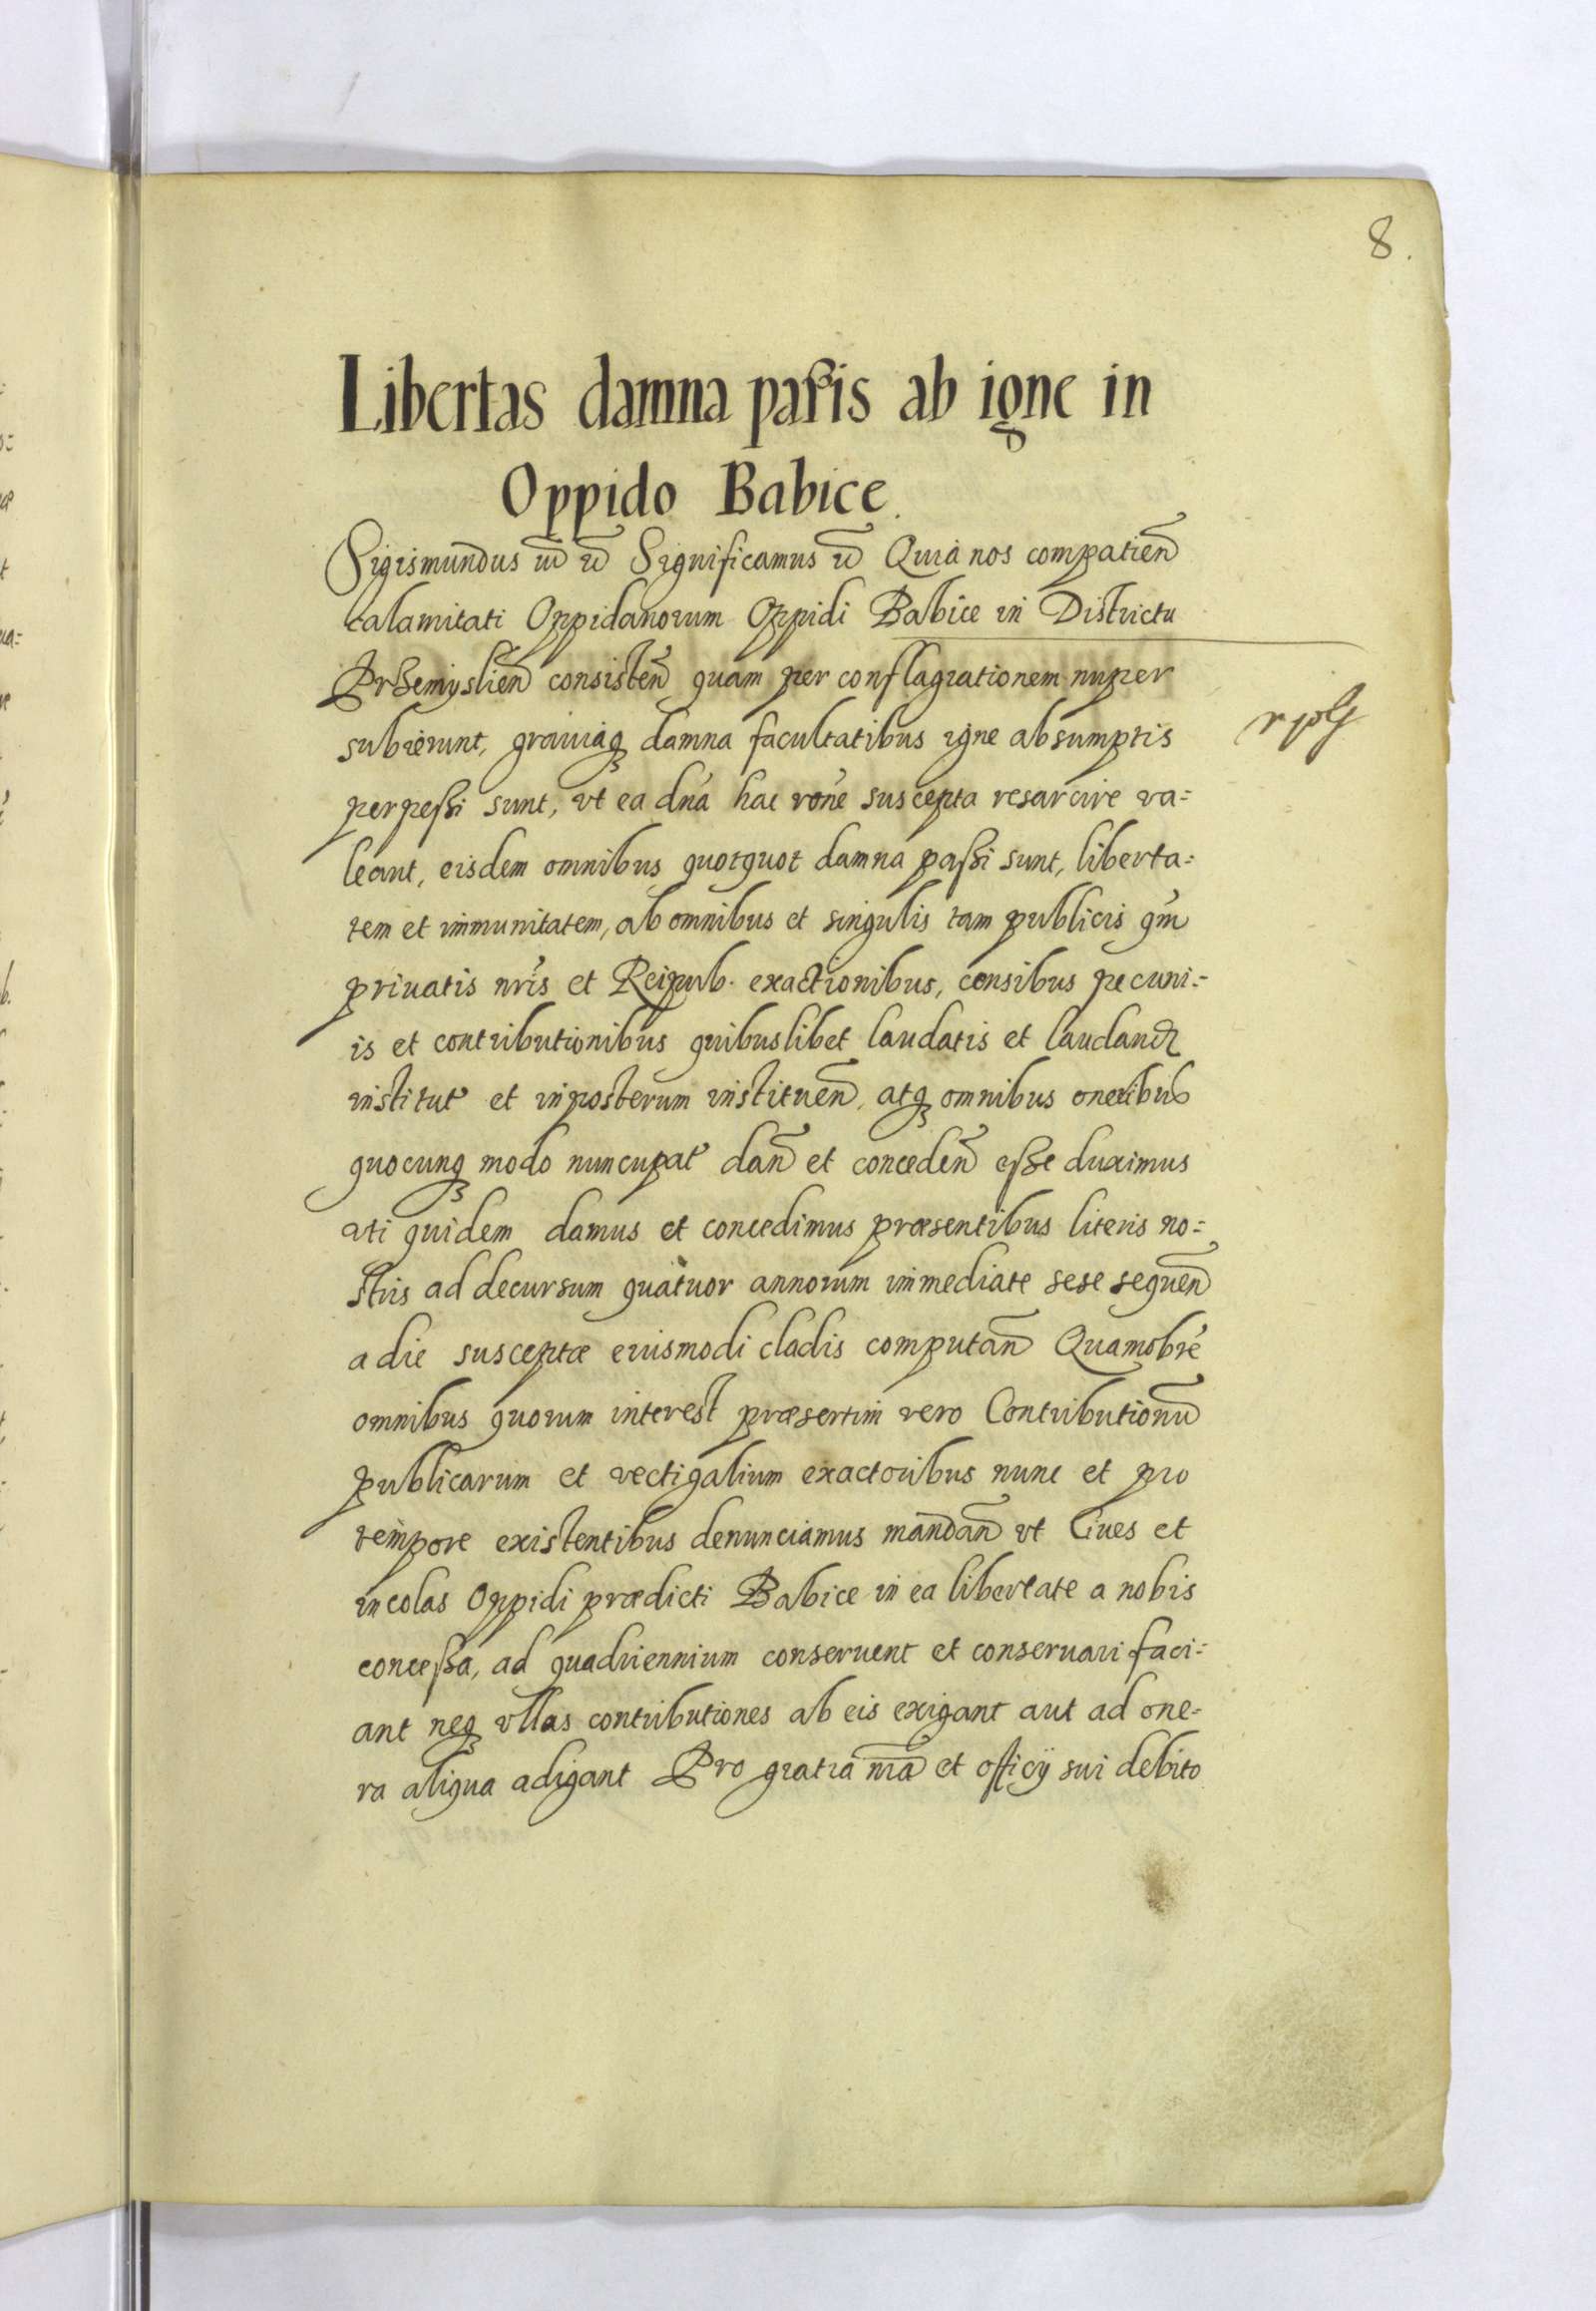 8.
Libertas damna paßis ab igne in
Oppido Babice.
Sigismundus Significamus Quia nos compatien̄
calamitati Oppidanorum Oppidi Babice in Districtu
Przemyslien̄ consisten̄ quam per conflagrationem nuper
subierunt, grauiaq₃ damna facultatibus igne absumptis
perpeßi sunt, vt ea dn̄a hac rōne suscepta resarcire va=
leant, eisdem omnibus quotquot damna paßi sunt, liberta=
tem et immunitatem, ab omnibus et singulis tam publicis qm̄
priuatis nr̄is et Reipub. exactionibus, censibus pecuni=
is et contributionibus quibuslibet laudatis et laudand
institut et inposterum instituen̄, atq₃ omnibus oneribus
quocunq₃ modo nuncupat dan̄ et conceden̄ eße duximus
uti quidem damus et concedimus præsentibus literis no=
stris ad decursum quatuor annorum immediate sese sequen̄
a die susceptæ eiusmodi cladis computan̄ Quamobrē
omnibus quorum interest præsertim vero Contributionū
publicarum et vectigalium exactoribus nunc et pro
tempore existentibus denunciamus mandan̄ vt Ciues et
incolas Oppidi prædicti Babice in ea libertate a nobis
conceßa, ad quadriennium conseruent et conseruari faci=
ant neq₃ vllas contributiones ab eis exigant aut ad one=
ra aliqua adigant Pro gratia nr̄a et officÿ sui debito